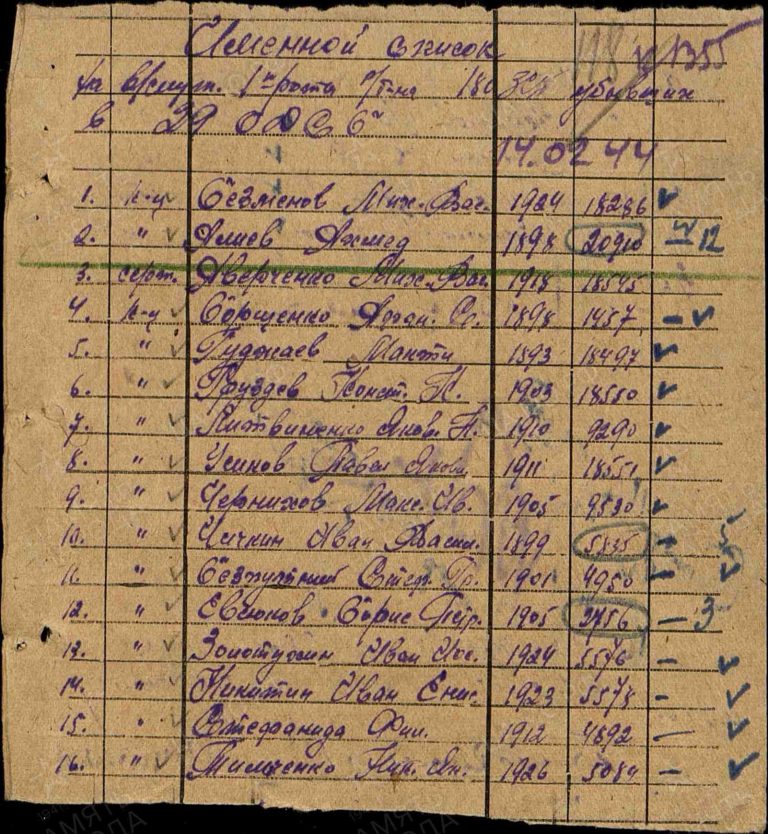 Именной список
на в/служ. 1й роты п/б-на 180 зсп убывших
в 29 ООС б
14.02.44
1. к-ц Безменов Мих. Вас. 1924 18286
2. " Алиев Ахмед 1898 20910 12
3. серж. Аверченко Мих. Вас. 1918 18545
4. к-ц Борщенко Афан. Ст. 1898 1457
5. " Гуджаев Манти 1893 18497
6. " Груздев Конст. Н. 1903 18550
7. " Литвиненко Яков. Н. 1910 9290
8. " Усиков Павел Яковл. 1911 18551
9. " Черников Макс. Ив. 1905 9530
10. " Чичкин Иван Васил. 1899 5835
11. " Стеф. Гр. 1901 4950
12. " Евсюков Борис Петр. 1905 2756 3
13. " Золотухин Иван Ис. 1924 5576
14. " Никитин Иван Енис. 1923 5578
15. " Стефанида Фил. 1912 4892
16. " Тимченко Ник. Ан. 1926 5084
118 1355